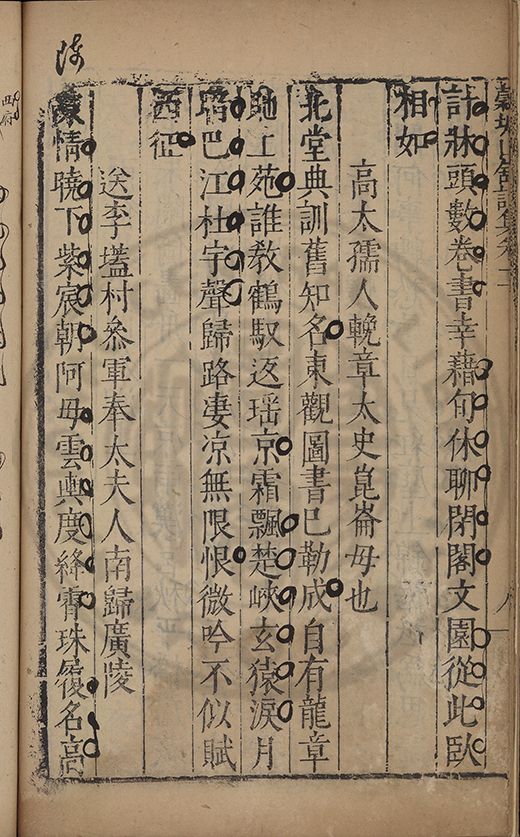 穀城山館詩集卷
八
計牀頭數卷書幸藉旬休聊閉閣文園從此臥
相如
高太孺人輓章太史崑崙母也
北堂典訓舊知名東觀圖書已勒成自有龍章
馳上苑誰教鶴馭返瑤京霜飄楚峽玄猿淚月
陷巴江杜宇聲歸路凄凉無限恨微吟不似賦
西征
送李壒村叅軍奉太夫人南歸廣陵
陳情曉下紫宸朝阿母雲輿度絳霄珠履名高